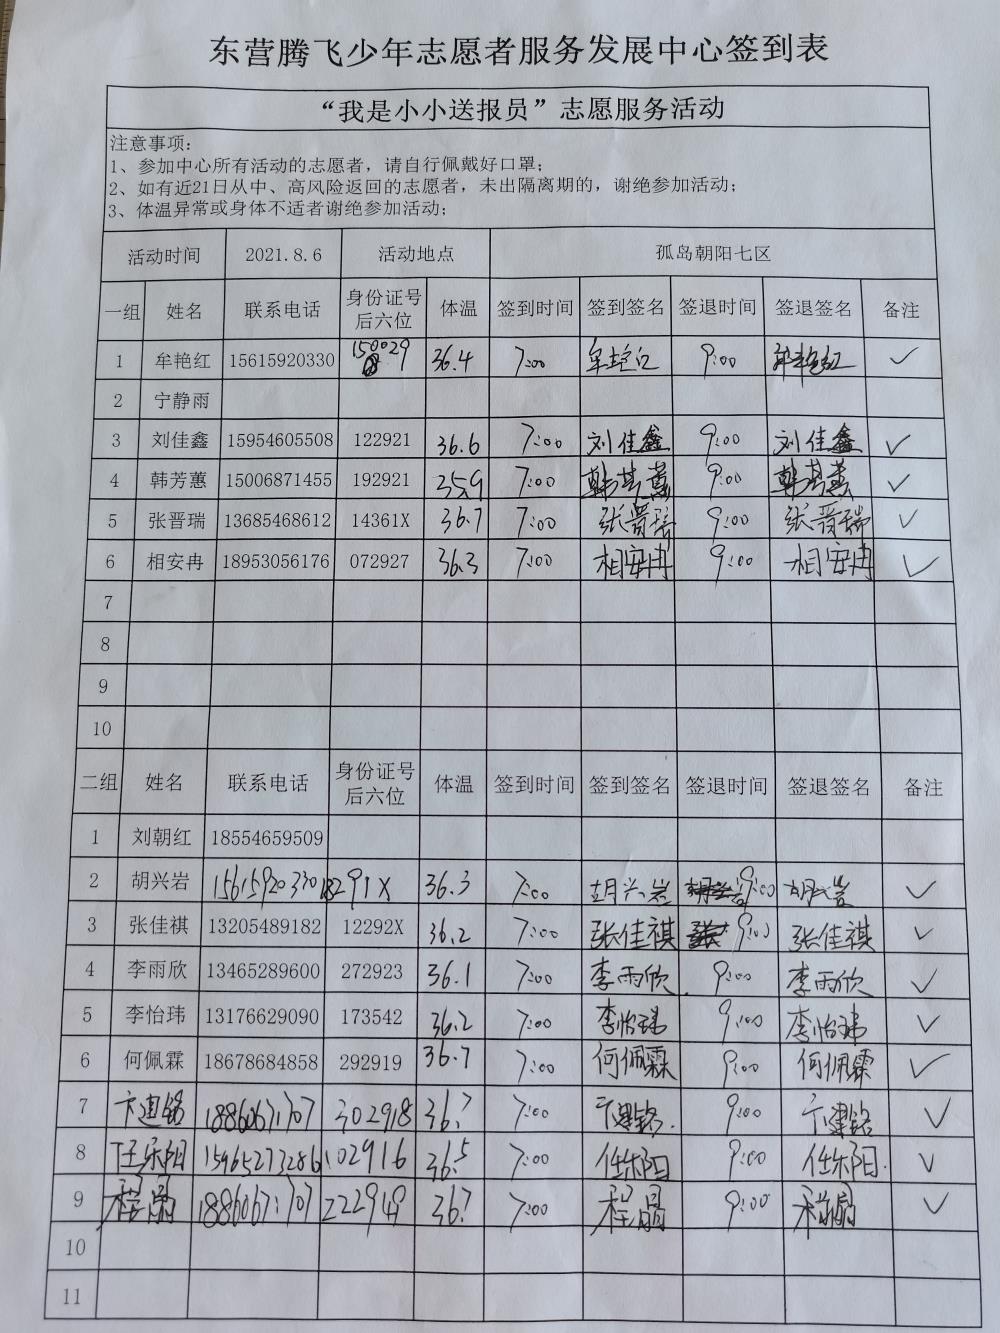 东营腾飞少年志愿者服务发展中心签到表
“我是小小送报员”志愿服务活动
注意事项:
1、参加中心所有活动的志愿者，请自行佩戴好口罩;
2、如有近21日从中、高风险返回的志愿者，未出隔离期的，谢绝参加活动;
3、体温异常或身体不适者谢绝参加活动;
活动时间 2021.8.6 活动地点 孤岛朝阳七区
一组 姓名 联系电话 身份证号后六位 体温 签到时间 签到签名 签退时间 签退签名 备注
1 牟艳红 15615920330 150029 36.4 7:00 牟艳红 9:00 牟艳红 ✓
2 宁静雨
3 刘佳鑫 15954605508 122921 36.6 7:00 刘佳鑫 9:00 刘佳鑫 ✓
4 韩芳蕙 15006871455 192921 35.9 7:00 韩芳蕙 9:00 韩芳蕙 ✓
5 张晋瑞 13685468612 14361X 36.7 7:00 张晋瑞 9:00 张晋瑞 ✓
6 相安冉 18953056176 072927 36.3 7:00 相安冉 9:00 相安冉 ✓
7
8
9
10
二组 姓名 联系电话 身份证号后六位 体温 签到时间 签到签名 签退时间 签退签名 备注
1 刘朝红 18554659509
2 胡兴岩 15615920330 18291X 36.3 7:00 胡兴岩 9:00 胡兴岩 ✓
3 张佳祺 13205489182 12292X 36.2 7:00 张佳祺 9:00 张佳祺 ✓
4 李雨欣 13465289600 272923 36.1 7:00 李雨欣 9:00 李雨欣 ✓
5 李怡玮 13176629090 173542 36.2 7:00 李怡玮 9:00 李怡玮 ✓
6 何佩霖 18678684858 292919 36.7 7:00 何佩霖 9:00 何佩霖 ✓
7 卞建铭 18860671707 302918 36.7 7:00 卞建铭 9:00 卞建铭 ✓
8 任乐阳 15965273286 102916 36.5 7:00 任乐阳 9:00 任乐阳 ✓
9 18860671707 36.7 7:00 9:00 ✓
10
11